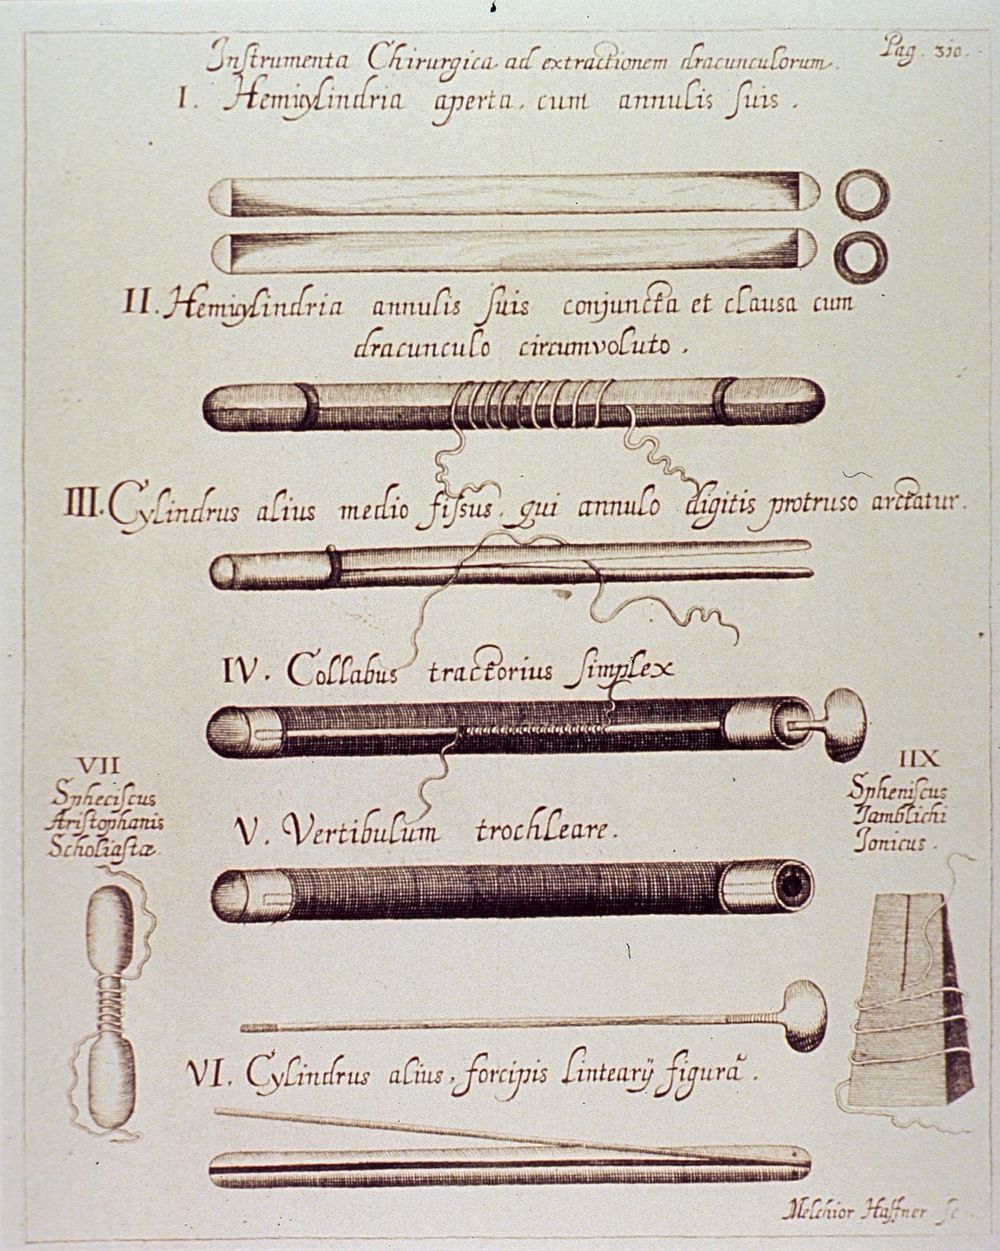 Pag. 310.
Inſtrumenta Chirurgica ad extractionem dracunculorum.
I. Hemicylindria aperta, cum annulis ſuis.
II. Hemicylindria annulis ſuis conjuncta et clausa cum
dracunculo circumvoluto.
III. Cylindrus alius medio fiſsus, qui annulo digitis protruso arctatur.
IV. Collabus tractorius ſimplex
VII
Spheciſcus
Ariſtophanis
Scholiaſtæ
IIX
Spheniſcus
Jamblichi
Jonicus.
V. Vertibulum trochleare.
VI. Cylindrus alius, forcipis lintearÿ figurã.
Melchior Haffner sc.